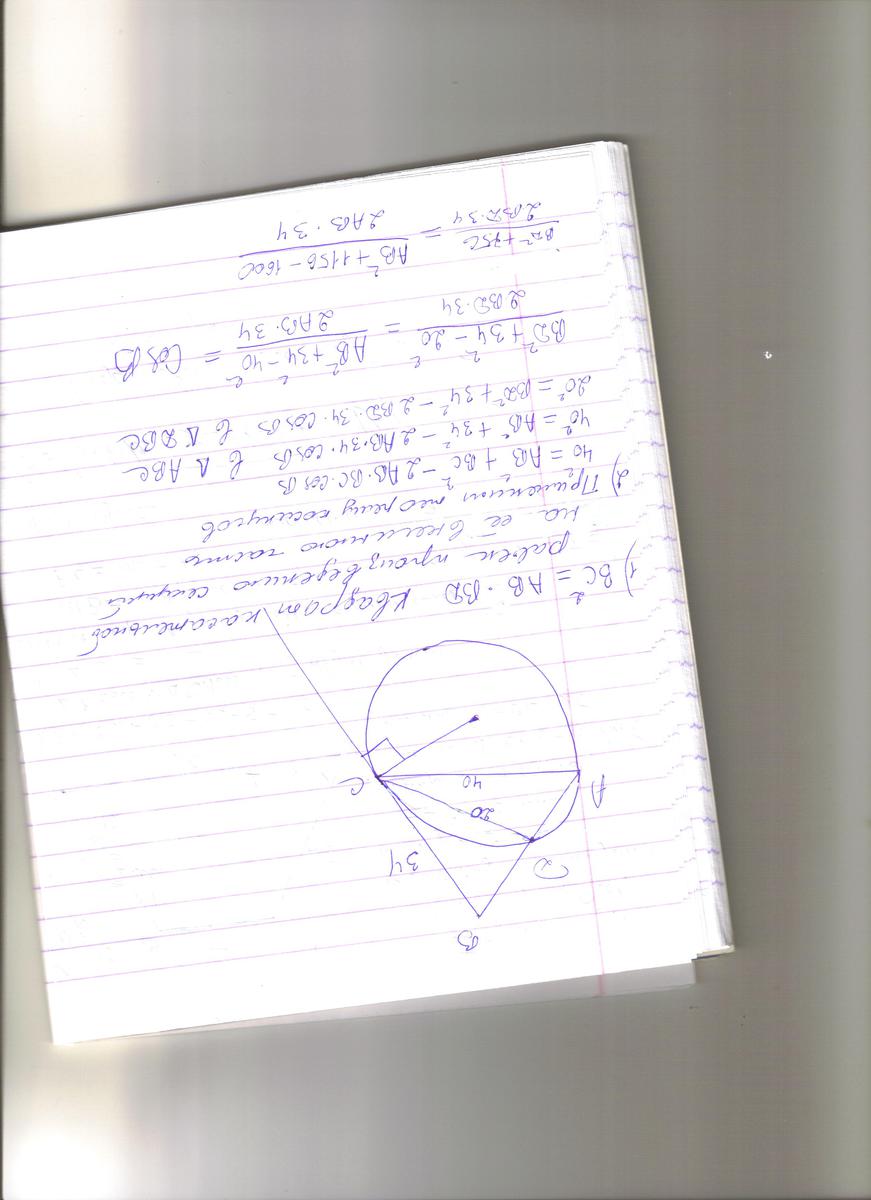 B
D
34
20
A
40
C
1) BC² = AB · BD Квадрат касательной
равен произведению секущей
на её внешнюю часть
2) Применим теорему косинусов
40² = AB² + BC² - 2AB·BC·cosB
40² = AB² + 34² - 2AB·34·cosB в Δ ABC
20² = BD² + 34² - 2BD·34·cosB в Δ DBC
BD² + 34² - 20² / 2BD·34 = AB² + 34² - 40² / 2AB·34 = CosB
BD² + 756 / 2BD·34 = AB² + 1156 - 1600 / 2AB·34